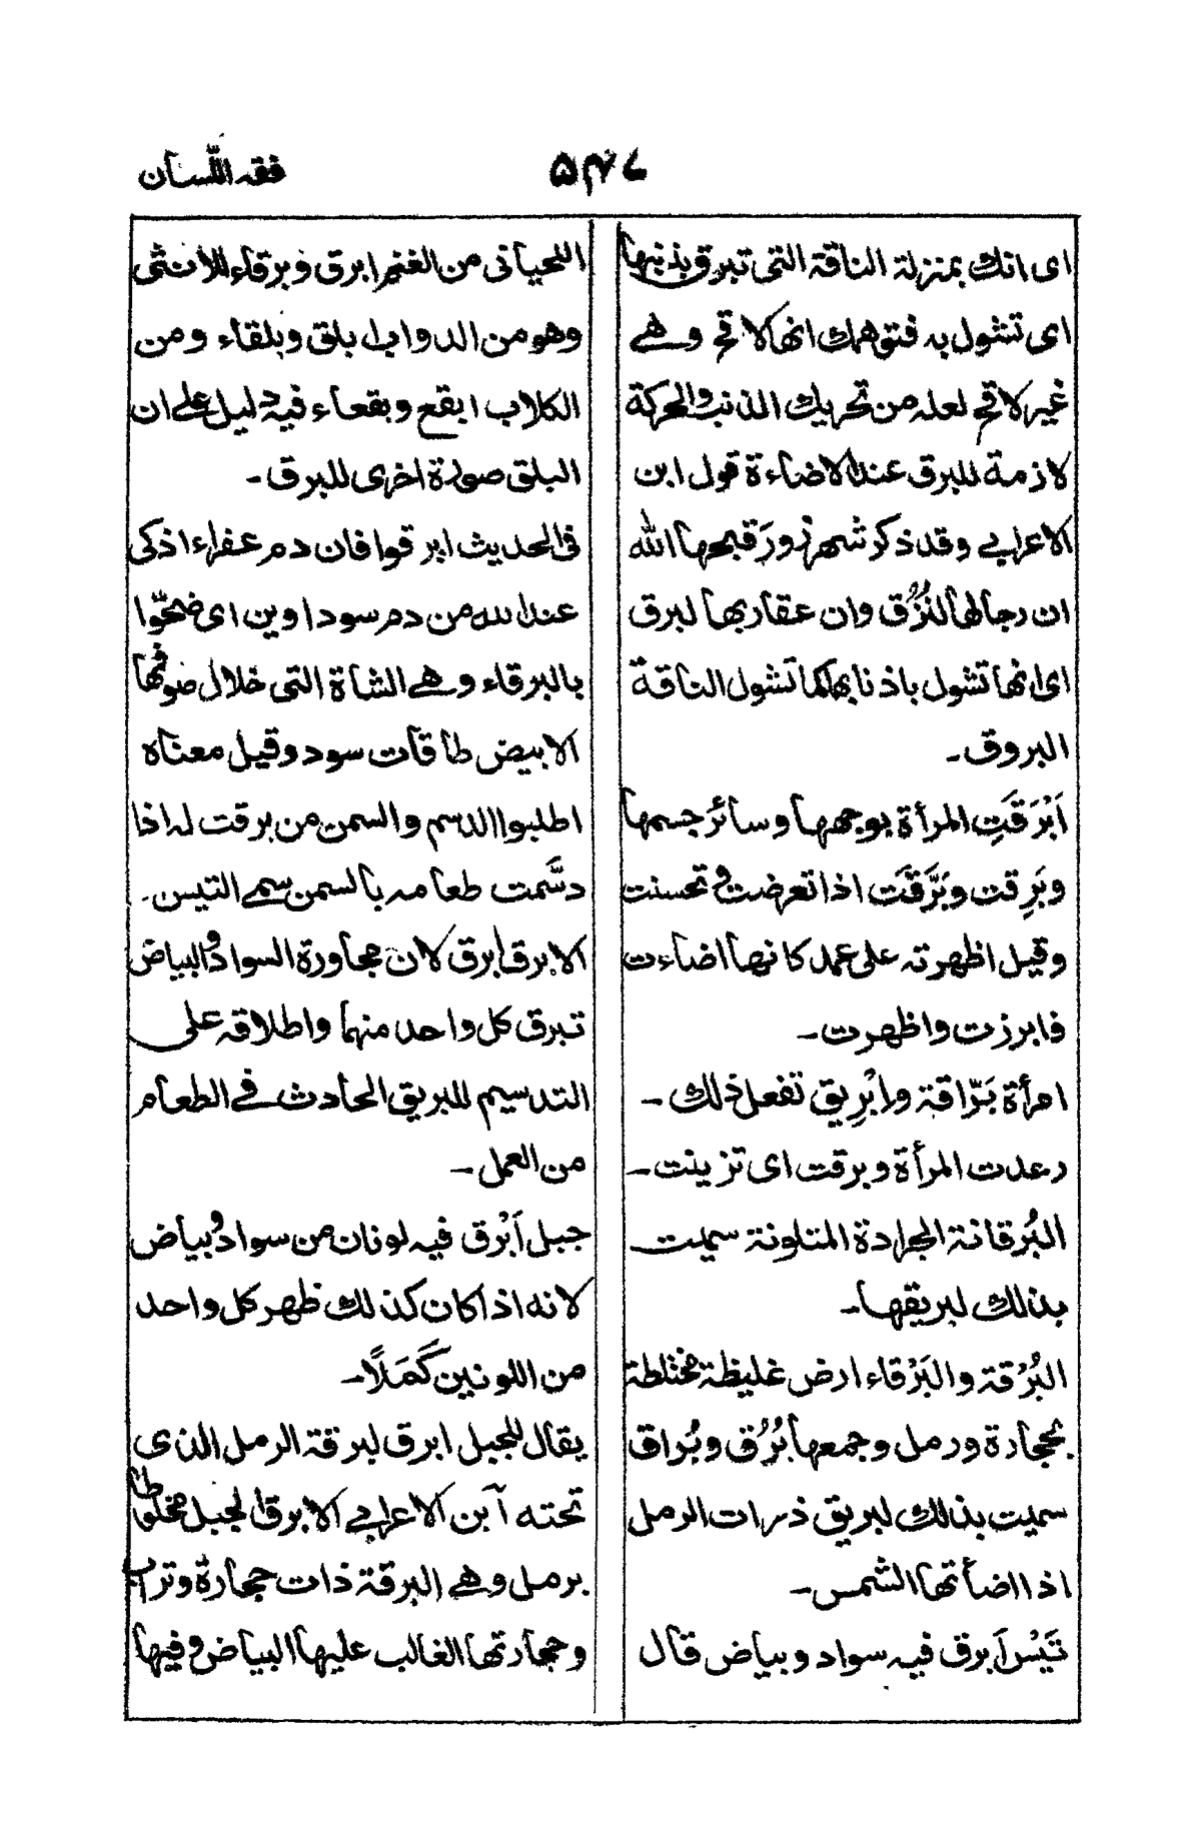 ۵۴۷
فقه اللّسان
ای انك بمنزلة الناقة التی تبرق بذنبها
ای تشول به فتوهمك انها لاقح وهے
غیر لاقح لعله من تحریك الذنب والحركة
لازمة للبرق عند الاضاءة قول ابن
الاعرابے وقد ذكر شهرزورَ قبحها الله
ان رجالها لنُزُق وان عقاربها لبرق
ای انها تشول باذنابها كما تشول الناقة
البروق۔
اَبْرَقَتِ المرأة بوجهها وسائر جسمها
وبَرِقت وبَرَّقَت اذا تعرضت وتحسنت
وقیل اظهرته علی عمد كانها اضاءت
فابرزت واظهرت۔
امرأة بَرّاقة وابْرِیق تفعل ذلك۔
رعدت المرأة وبرقت ای تزینت۔
البُرقانة الجرادة المتلونة سمیت
بذلك لبریقها۔
البُرْقة والبَرْقاء ارض غلیظة مختلطة
بحجارة ورمل وجمعها بُرُق وبُراق
سمیت بذلك لبریق ذرات الرمل
اذا اضأتها الشمس۔
تَیْس اَبرق فیه سواد وبیاض قال
اللحیانی من الغنم ابرق وبرقاء للانثی
وهو من الدواب ابلق وبلقاء ومن
الكلاب ابقع وبقعاء فیه دلیل علے ان
البلق صورة اخری للبرق۔
فی الحدیث ابرقوا فان دم عفراء اذكی
عند الله من دم سوداوین ای ضحّوا
بالبرقاء وهے الشاة التی خلال صوفها
الابیض طاقات سود وقیل معناه
اطلبوا الدسم والسمن من برقت له اذا
دسَّمت طعامه بالسمن سمے التیس۔
الابرق ابرق لان مجاورة السواد والبیاض
تبرق كل واحد منهما واطلاقه علی
التدسیم للبریق الحادث فے الطعام
من العمل۔
جبل اَبْرق فیه لونان من سواد وبیاض
لانه اذا كان كذلك ظهر كل واحد
من اللونین كَمَلًا۔
یقال للجبل ابرق لبرقة الرمل الذی
تحته آبن الاعرابے الابرق الجبل مخلوطا
برمل وهے البرقة ذات حجارة وتراب
وحجارتها الغالب علیها البیاض وفیها